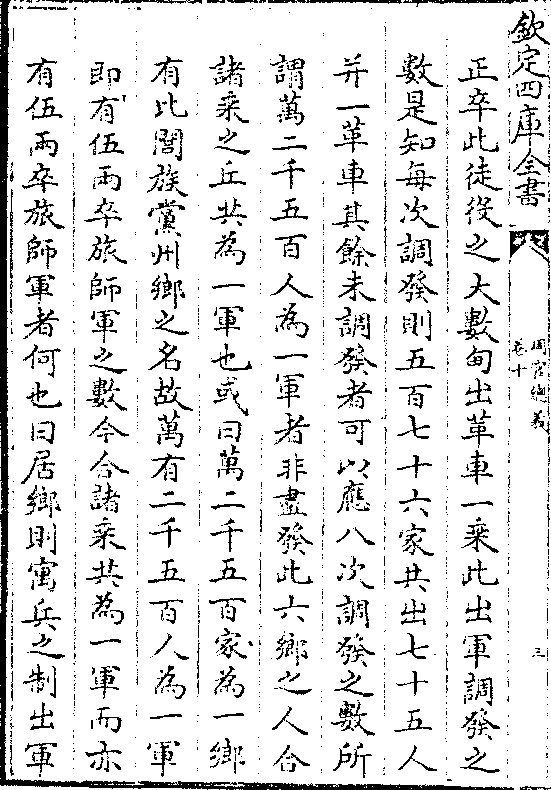 欽定四庫全書
周官總義
卷十
三
正卒此徒役之大數甸出革車一乘此出軍調發之
數是知每次調發則五百七十六家共出七十五人
并一革車其餘未調發者可以應八次調發之數所
謂萬二千五百人為一軍者非盡發此六鄉之人合
諸乘之丘共為一軍也或曰萬二千五百家為一鄉
有比閭族黨州鄉之名故萬有二千五百人為一軍
即有伍兩卒旅師軍之數今合諸乘共為一軍而亦
有伍兩卒旅師軍者何也曰居鄉則寓兵之制出軍